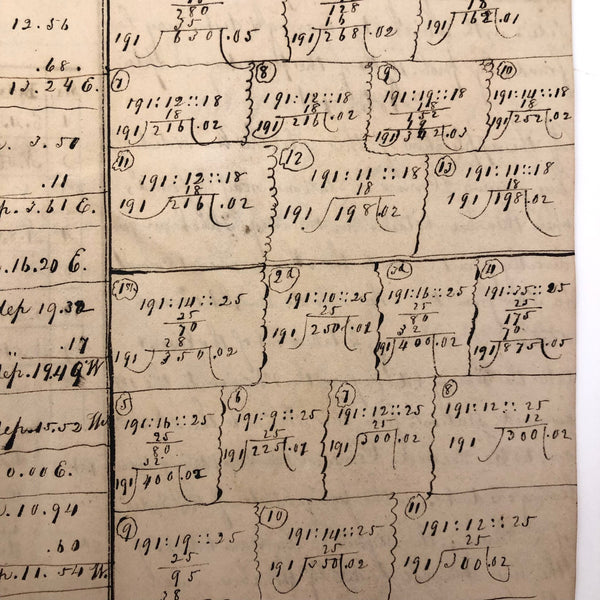 12.56
.68.
13.24 E.
3.50
.11
3.61 E.
.16.20 E.
dep 19.32
.17
dep. 19.49 W
dep. 15.52 W.
0.00 E.
.10.94
.60
.11.54 W.
380
25
191)630(.05
128
16
191)268(.02
18
191)162(.01
7
191:12::18
18
191)216(.02
8
191:12::18
18
191)216(.02
9
191:19::18
18
152
19
191)342(.03
10
191:14::18
18
191)252(.02
11
191:12::18
18
191)216(.02
12
191:11::18
18
191)198(.02
13
191:11::18
18
191)198(.02
1st
191:14::25
25
70
28
191)350(.02
2d
191:10::25
25
191)250(.01
3d
191:16::25
25
80
32
191)400(.02
4
191:35::25
25
175
70
191)875(.05
5
191:16::25
25
80
32
191)400(.02
6
191:9::25
25
191)225(.01
7
191:12::25
25
191)300(.02
8
191:12::25
12
191)300(.02
9
191:19::25
25
95
38
10
191:14::25
25
191)350(.02
11
191:12::25
25
191)300(.02